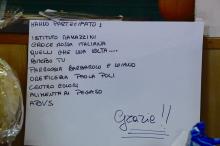 HANNO PARTECIPATO:
ISTITUTO RAMAZZINI
CROCE ROSSA ITALIANA
QUELLI CHE UNA VOLTA....
BIMBO TU
PARROCCHIA BARBAROLO E
OREFICERIA PAOLA POLI
CENTRO COLORI
ALIMENTARI PEGASO
Grazie!!